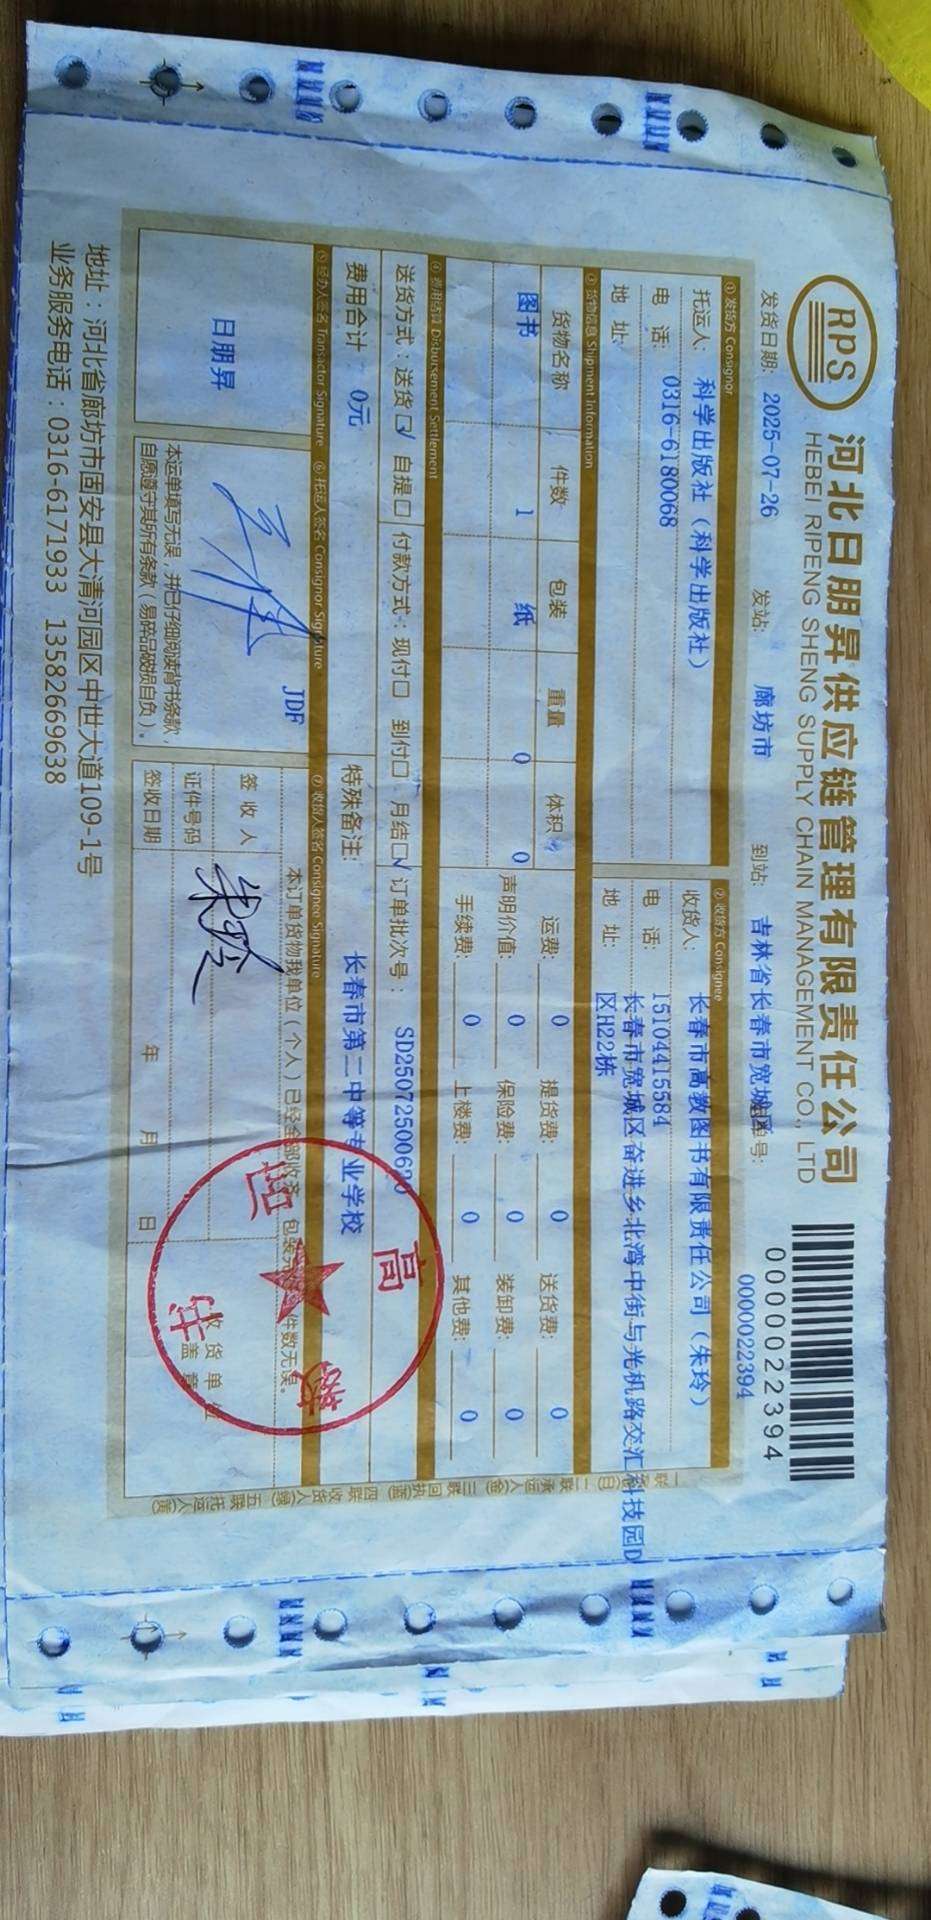 RPS
河北日朋昇供应链管理有限责任公司
HEBEI RIPENG SHENG SUPPLY CHAIN MANAGEMENT CO., LTD
0000022394
发货日期: 2025-07-26 发站: 廊坊市 到站: 吉林省长春市宽城区 单号: 0000022394
① 发货方 Consignor
托运人: 科学出版社(科学出版社)
电 话: 0316-6180068
地 址:
② 收货方 Consignee
收货人: 长春市高教图书有限责任公司(朱玲)
电 话: 15104415584
地 址: 长春市宽城区奋进乡北湾中街与光机路交汇科技园D
区H22栋
③ 货物信息 Shipment Information
货物名称 件数 包装 重量 体积
图书 1 纸 0 0
运费: 0 提货费: 0 送货费: 0
声明价值: 0 保险费: 0 装卸费: 0
手续费: 0 上楼费: 0 其他费: 0
④ 费用结算 Disbursement Settlement
送货方式:送货□√ 自提□ 付款方式: 现付□ 到付□ 月结□√ 订单批次号: SD250725006
费用合计: 0元 特殊备注: 长春市第二中等专业学校
⑤ 经办人签名 Transactor Signature ⑥ 托运人签名 Consignor Signature ⑦ 收货人签名 Consignee Signature
日朋昇
JDF
本运单填写无误,并已仔细阅读背书条款,
自愿遵守其所有条款(易碎品破损自负)。
本订单货物我单位(个人)已经全部收齐,包装完 件数无误。
签 收 人 朱玲
证件号码
签收日期 年 月 日
收货单位
盖章
高教
一联 (白) 二联承运人(金) 三联回执(蓝) 四联收货人(绿) 五联托运人(黄)
地址:河北省廊坊市固安县大清河园区中世大道109-1号
业务服务电话:0316-6171933 13582669638